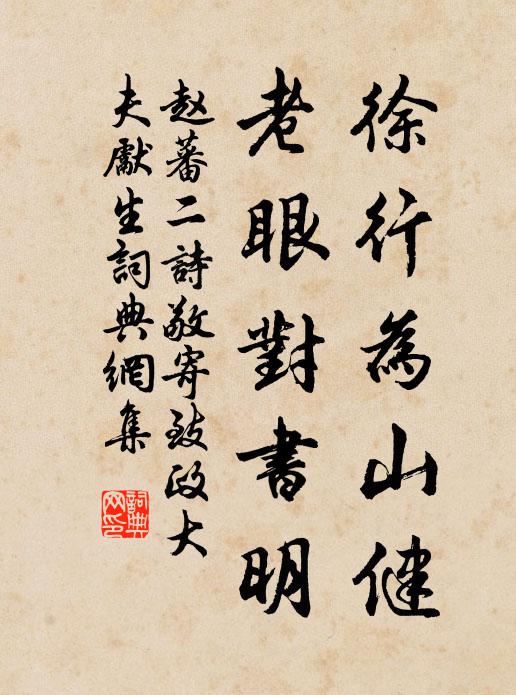 徐行為山健
老眼對書明
赵蕃二詩敬寄致政大
夫獻生詞典網集
詞典
网印